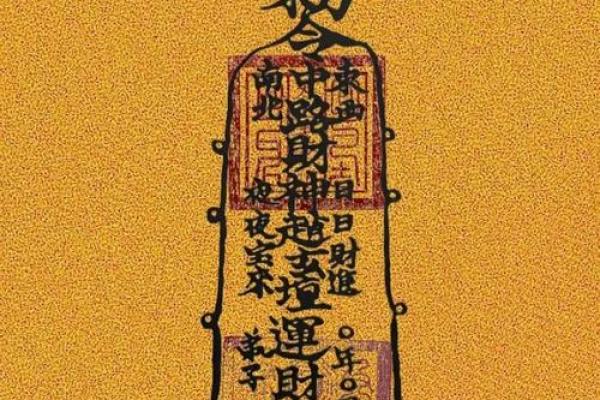 東西
日日財進
〇年〇
令中路財神趙玄壇運財
南北
夜夜宝来
弟子